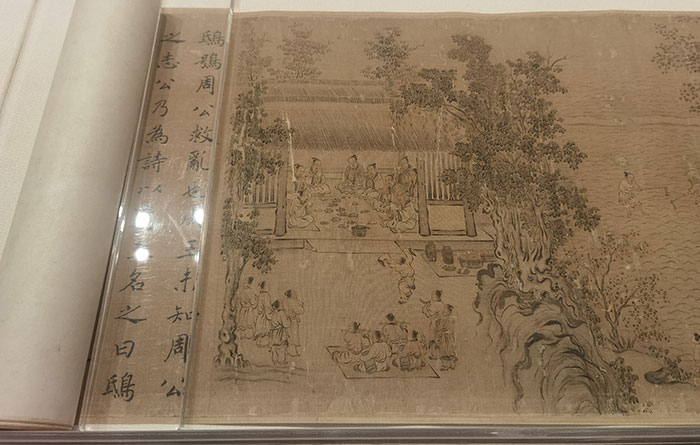 鴟鴞周公救亂也王未知周公
之志公乃為詩以王名之曰鴟